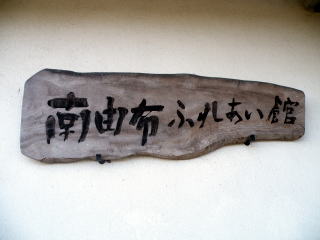 南由布ふれあい館